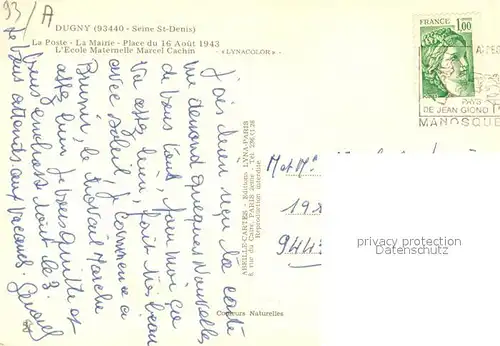 93/A
DUGNY (93440 - Seine St-Denis)
La Poste - La Mairie - Place du 16 Août 1943
L'Ecole Maternelle Marcel Cachin
« LYNACOLOR »
FRANCE 1,00
PAYS
DE JEAN GIONO
MANOSQUE
J'ai bien reçu ta carte
me demand quelques Nouvelles
de vous tous, pour moi ça
va assez bien, fait très beau
avec soleil, je commence a
Bronir, le travail Marche
assez bien, je vous quitte et
vous embrasse tout le 3.
Je vous attends aux vacances.
ABEILLE-CARTES - Editions LYNA-PARIS
8, rue du Caire, PARIS 2ème - Tél. 236.41.28
Reproduction interdite
Couleurs Naturelles
M et Mme
19
944
privacy protection
Datenschutz